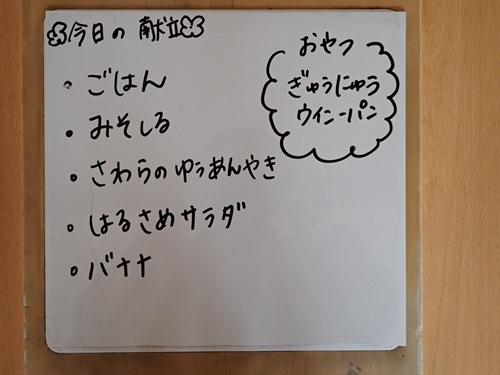 今日の献立
・ごはん
・みそしる
・さわらのゆうあんやき
・はるさめサラダ
・バナナ
おやつ
ぎゅうにゅう
ウインーパン